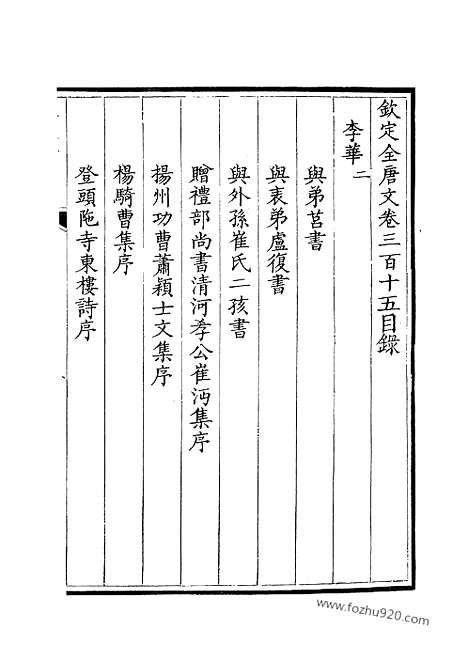 欽定全唐文卷三百十五目錄
李華二
與弟莒書
與表弟盧復書
與外孫崔氏二孩書
贈禮部尚書清河孝公崔沔集序
揚州功曹蕭穎士文集序
楊騎曹集序
登頭陁寺東樓詩序
www.fozhu920.com